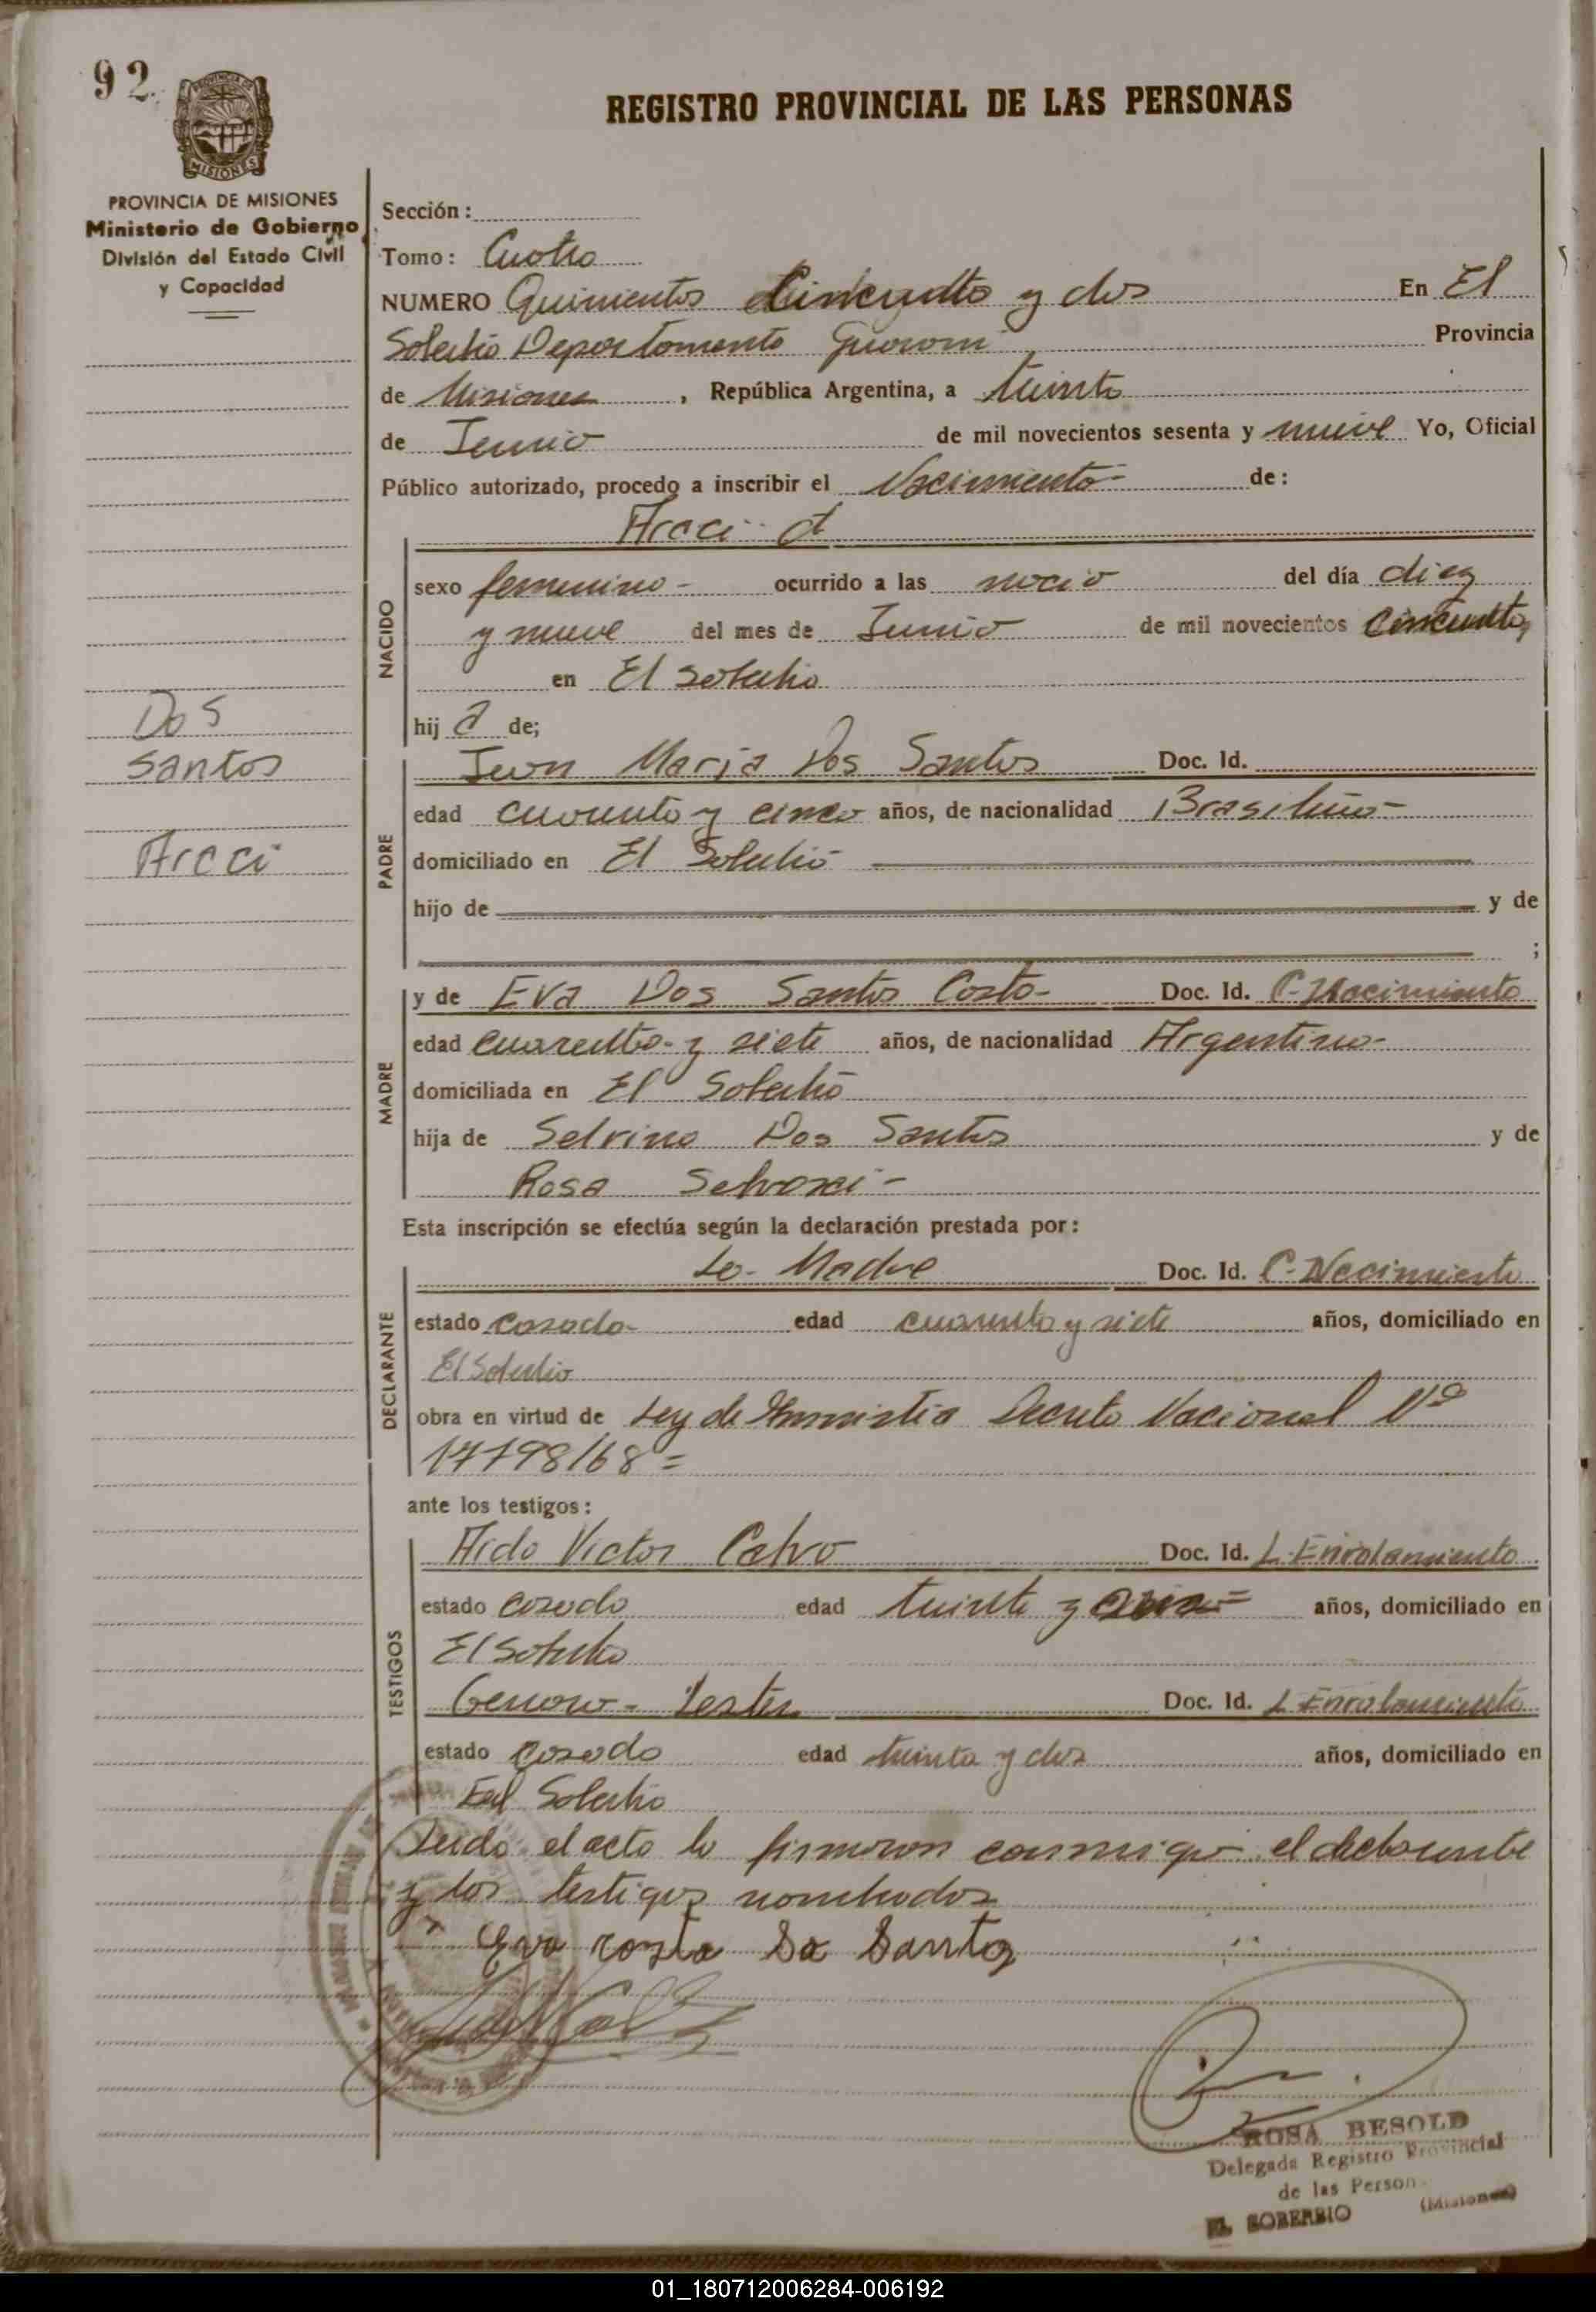 92.
REGISTRO PROVINCIAL DE LAS PERSONAS
PROVINCIA DE MISIONES
Ministerio de Gobierno
División del Estado Civil
y Capacidad
Sección:
Tomo: Cuatro
NUMERO Quinientos Cincuenta y dos En El
Soberbio Departamento Guarani Provincia
de Misiones, República Argentina, a treinta
de Junio de mil novecientos sesenta y nueve Yo, Oficial
Público autorizado, procedo a inscribir el Nacimiento de:
Araci
NACIDO
sexo femenino - ocurrido a las del día diez
y nueve del mes de Junio de mil novecientos cincuenta,
en El Soberbio
hij a de;
Dos
Santos
Araci
PADRE
Juan Maria Dos Santos Doc. Id.
edad cuarenta y cinco años, de nacionalidad Brasileño-
domiciliado en El Soberbio
hijo de y de
;
MADRE
y de Eva Dos Santos Costa- Doc. Id. C-Nacimiento
edad cuarenta y siete años, de nacionalidad Argentina-
domiciliada en El Soberbio
hija de Selvino Dos Santos y de
Rosa
Esta inscripción se efectúa según la declaración prestada por:
DECLARANTE
La Madre Doc. Id. C-Nacimiento
estado casada- edad cuarenta y siete años, domiciliado en
El Soberbio
obra en virtud de Ley de Amnistia Decreto Nacional Nº
17798/68=
ante los testigos:
TESTIGOS
Aldo Victor Calvo Doc. Id. L. Enrolamiento
estado casado edad treinta y años, domiciliado en
El Soberbio
Genaro Doc. Id. L Enrolamiento
estado casado edad treinta y dos años, domiciliado en
Eel Soberbio
Leida el acta la firmaron conmigo el declarante
y los testigos nombrados
Eva costa Do Santos
ROSA BESOLD
Delegada Registro Provincial
de las Person
EL SOBERBIO (Misiones)
01_180712006284-006192